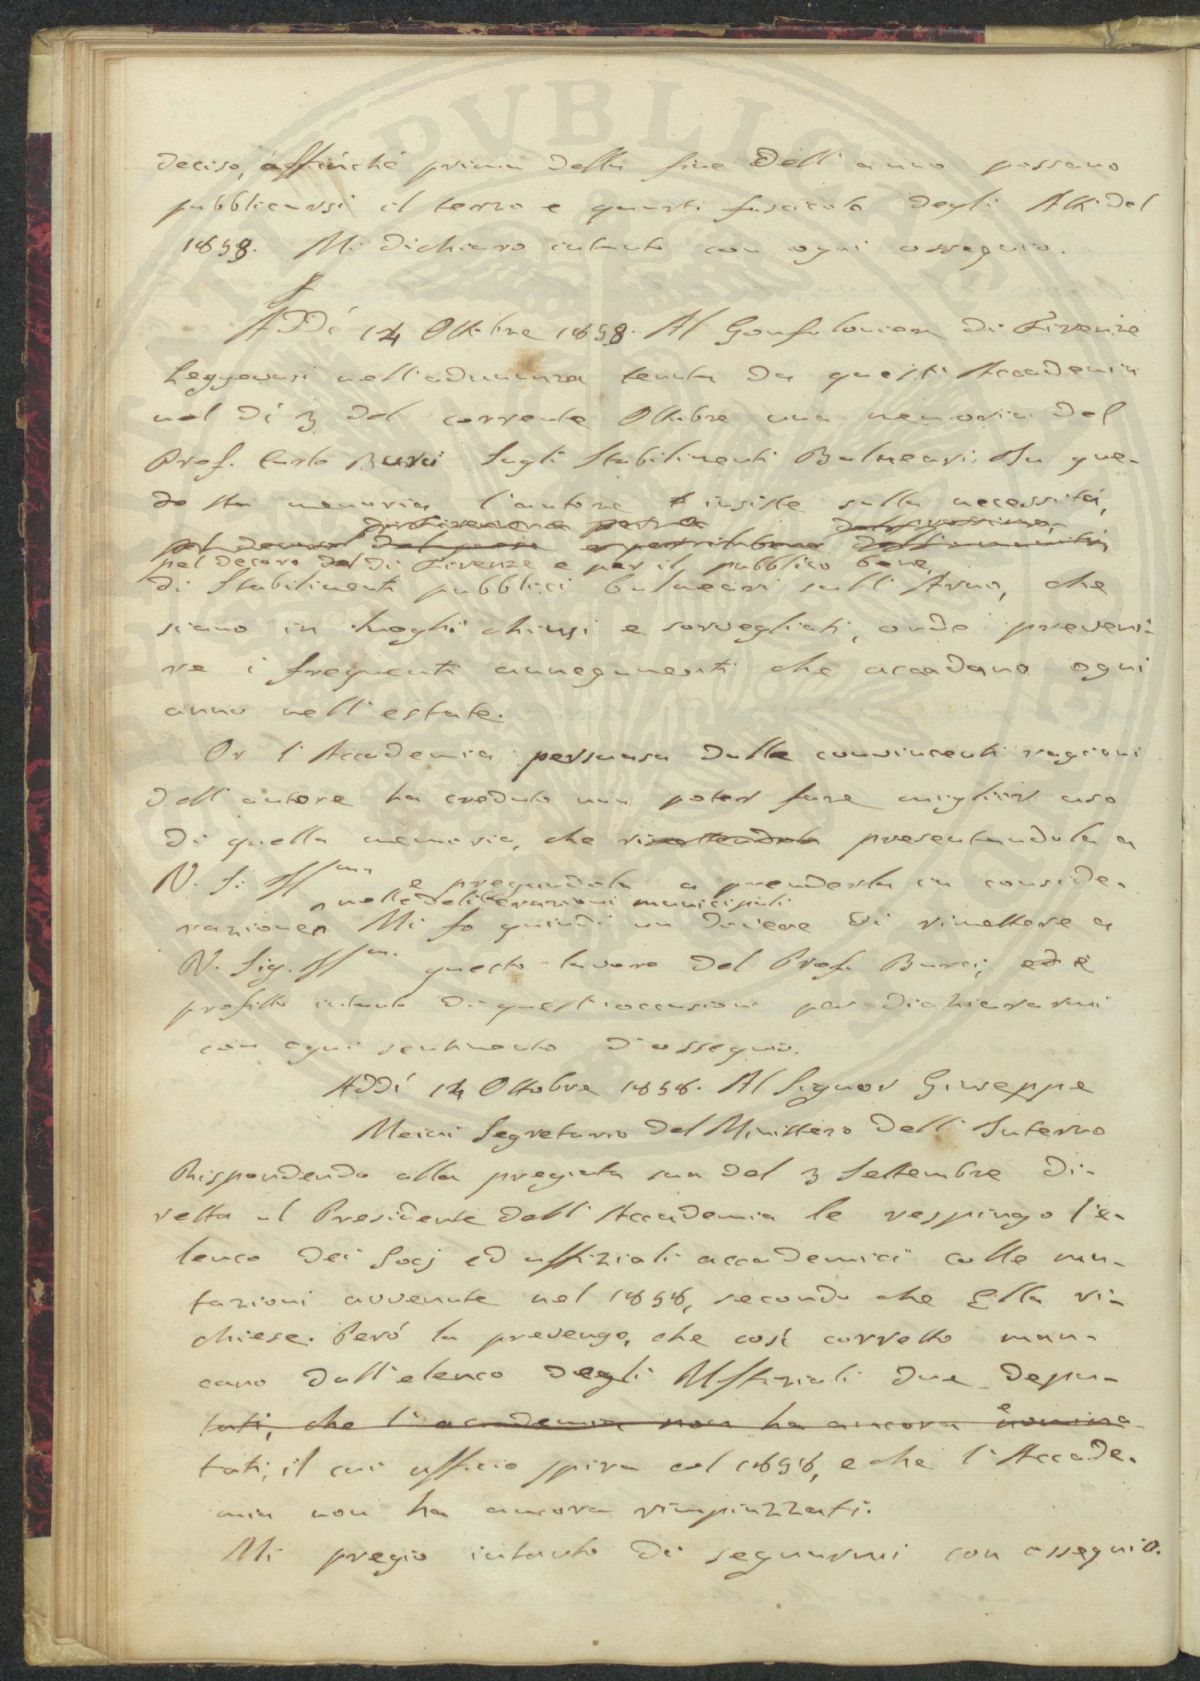 deciso, affinché prima della fine dell'anno possano
pubblicarsi il terzo e quarto fascicolo degli Atti del
1858. Mi dichiaro intanto con ogni ossequio.
Addí 14 Ottobre 1858. Al Gonfaloniere di Firenze
Leggevasi nell'adunanza tenuta da questa Accademia
nel dí 3 del corrente Ottobre una memoria del
Prof. Carlo Burci Sugli Stabilimenti Balneari. In que-
sta memoria l'autore insiste sulla necessitá,
pel decoro di Firenze e per il pubblico bene,
di Stabilimenti pubblici balneari sull'Arno, che
siano in luoghi chiusi e sorvegliati, onde preveni-
re i frequenti annegamenti che accadono ogni
anno nell'estate.
Or l'Accademia persuasa dalle convincenti ragioni
dell'autore ha creduto non poter fare miglior uso
di quella memoria, che presentandola a
V. S. Illma e pregandola a prenderla in conside-
nelle deliberazioni municipali
razione. Mi fo quindi un dovere di rimettere a
V. Sig. Illma questo lavoro del Prof. Burci, ed è
profitto intanto di quest'occasione per dichiararmi
con ogni sentimento d'ossequio.
Addí 14 Ottobre 1858. Al Signor Giuseppe
Meini Segretario del Ministero dell'Interno
Rispondendo alla pregiata sua del 3 Settembre di-
retta al Presidente dell'Accademia le respingo l'e-
lenco dei Socj ed uffiziali accademici colle mu-
tazioni avvenute nel 1858, secondo che Ella ri-
chiese. Peró la prevengo, che cosí corretto man-
cano dall'elenco degli Uffiziali due depu-
tati, che l'accademia non ha ancora nomina
tati, il cui ufficio spira col 1858, e che l'Accade-
mia non ha ancora rimpiazzati.
Mi pregio intanto di segnarmi con ossequio.